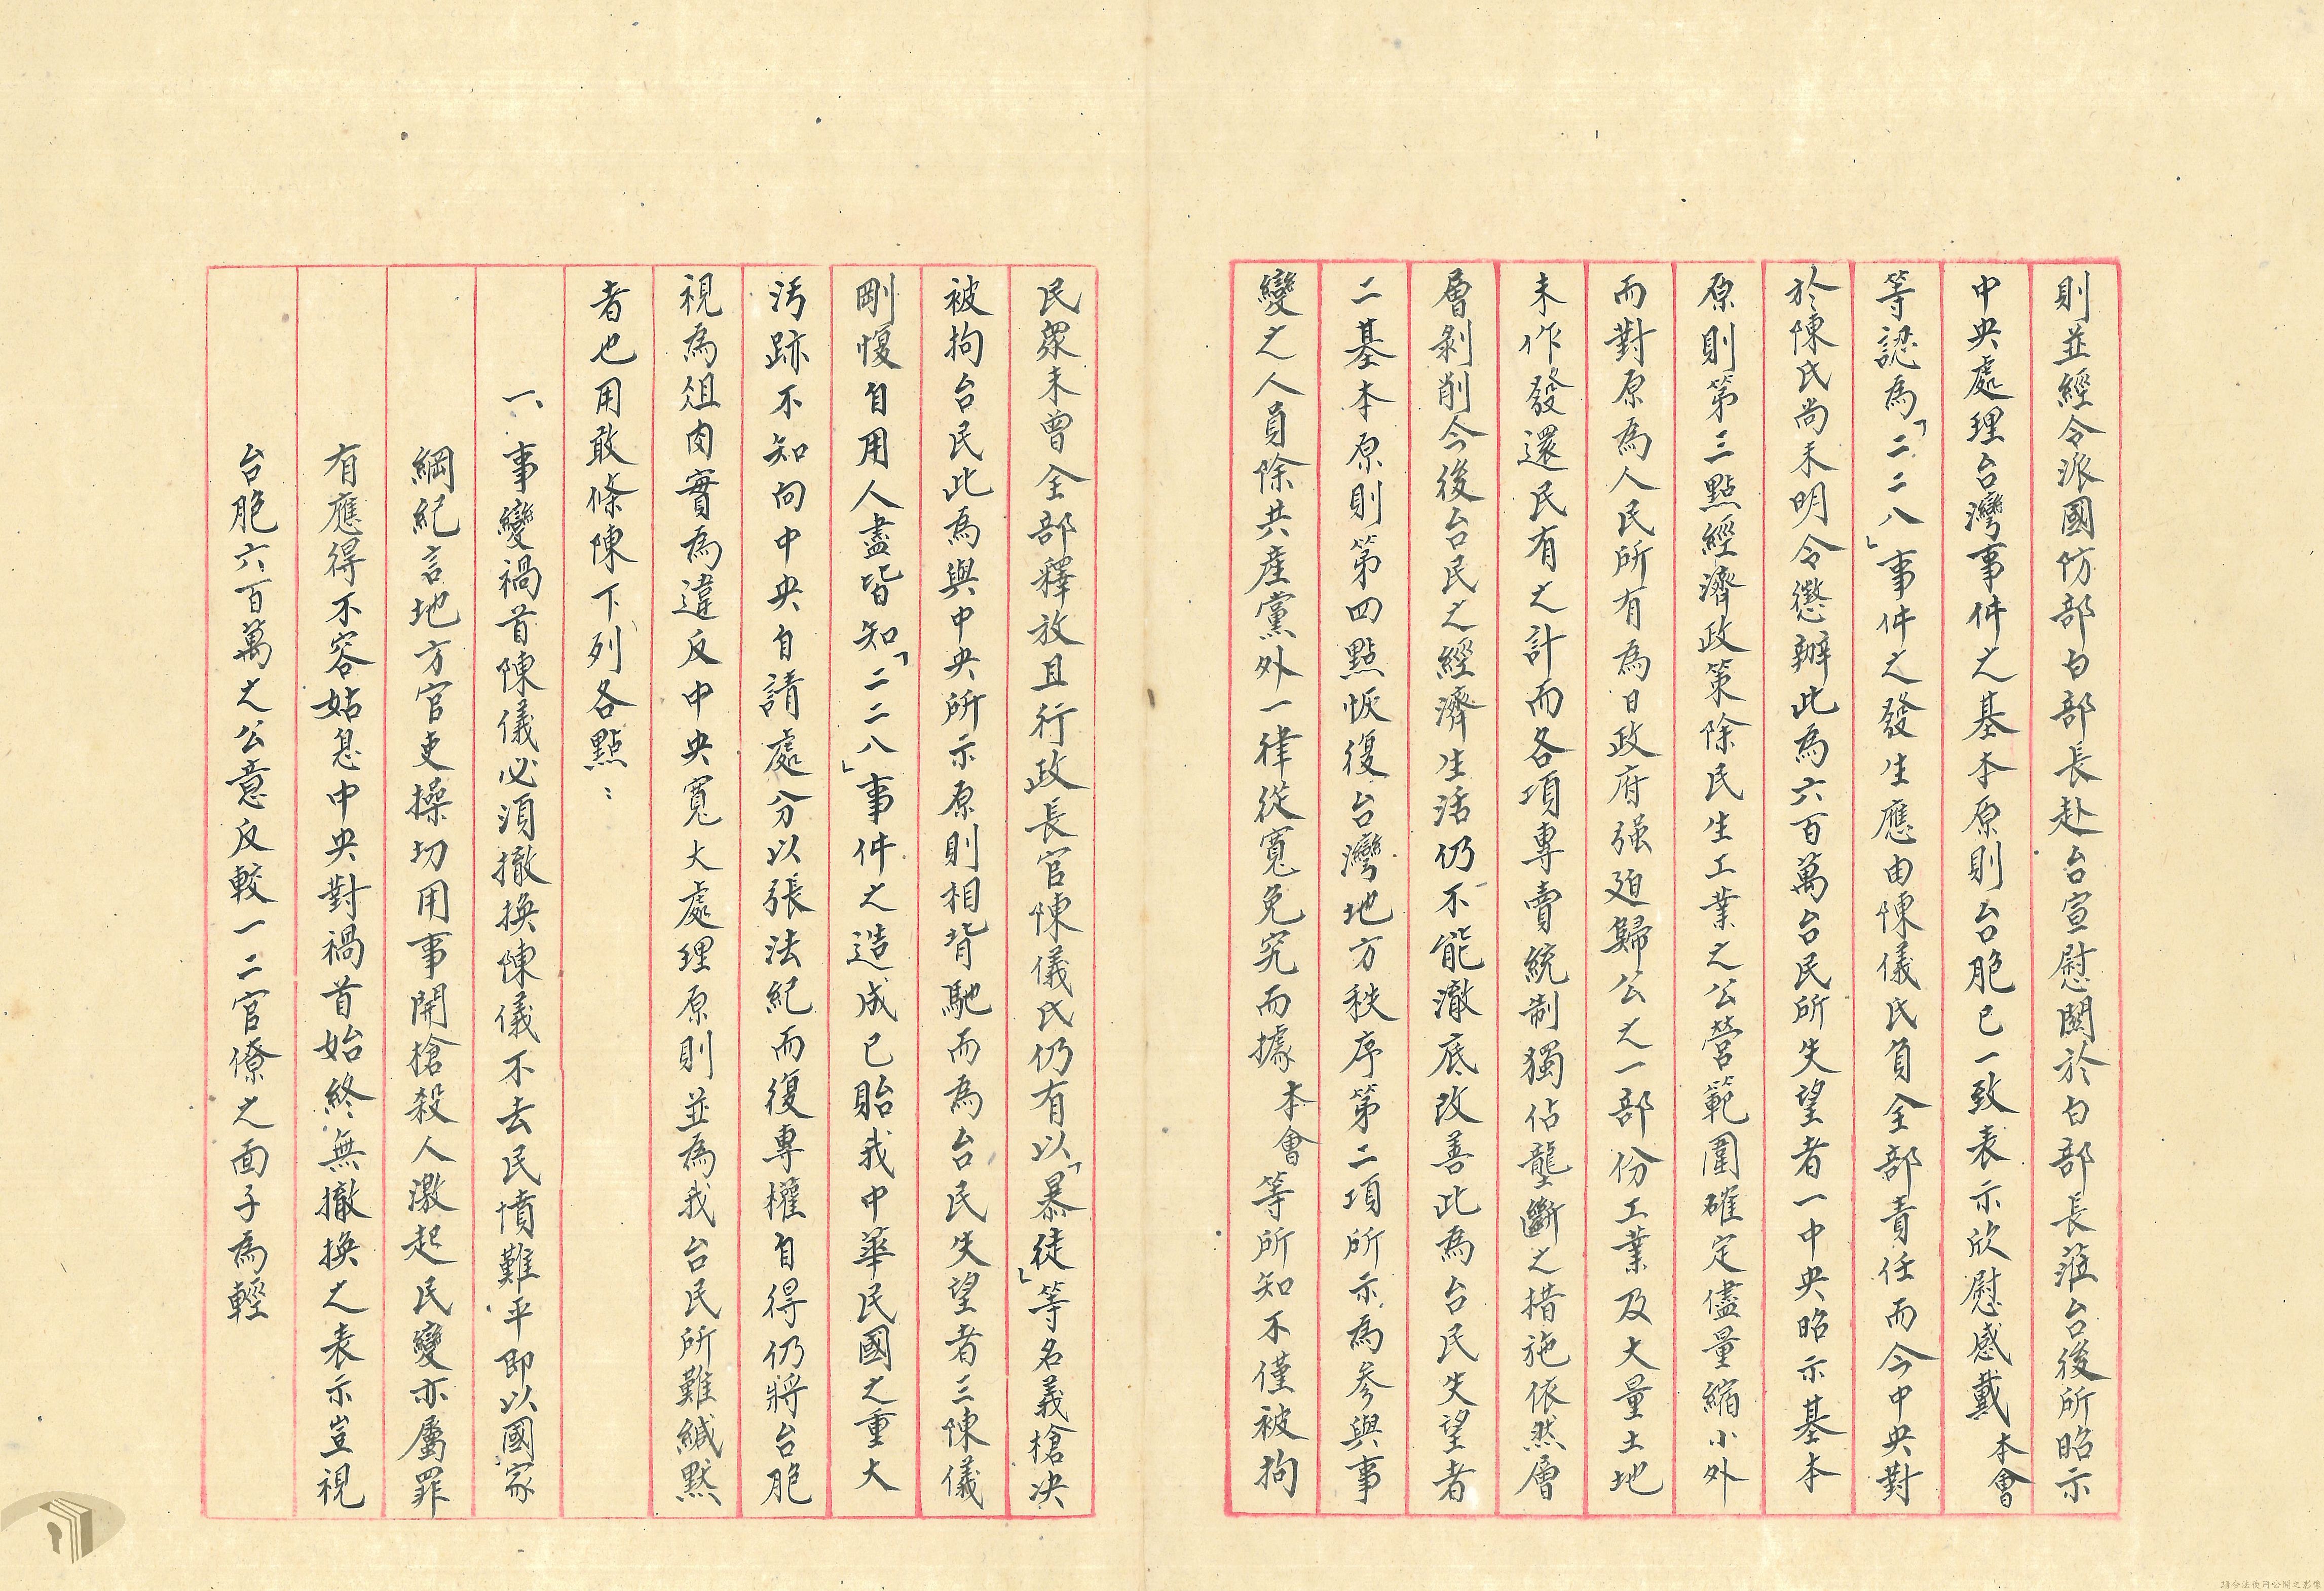 則並經令派國防部白部長赴台宣慰關於白部長蒞台後所昭示
中央處理台灣事件之基本原則台胞已一致表示欣慰感戴本會
等認為「二二八」事件之發生應由陳儀氏負全部責任而今中央對
於陳氏尚未明令懲辦此為六百萬台民所失望者一中央昭示基本
原則第三點經濟政策除民生工業之公營範圍確定儘量縮小外
而對原為人民所有為日政府强廹歸公之一部份工業及大量土地
未作發還民有之計而各項專賣統制獨佔壟斷之措施依然層
層剝削今後台民之經濟生活仍不能澈底改善此為台民失望者
二基本原則第四點恢復台灣地方秩序第二項所示為參與事
變之人員除共產黨外一律從寬免究而據本會等所知不僅被拘
民眾未曾全部釋放且行政長官陳儀氏仍有以「暴徒」等名義槍決
被拘台民此為與中央所示原則相背馳而為台民失望者三陳儀
剛愎自用人盡皆知「二二八」事件之造成已貽我中華民國之重大
汚跡不知向中央自請處分以張法紀而復專權自得仍將台胞
視為俎肉實為違反中央寬大處理原則並為我台民所難緘默
者也用敢條陳下列各點：
一、事變禍首陳儀必須撤換陳儀不去民憤難平即以國家
綱紀言地方官吏操切用事開槍殺人激起民變亦屬罪
有應得不容姑息中央對禍首始終無撤換之表示豈視
台胞六百萬之公意反較一二官僚之面子為輕
請合法使用公開之影像